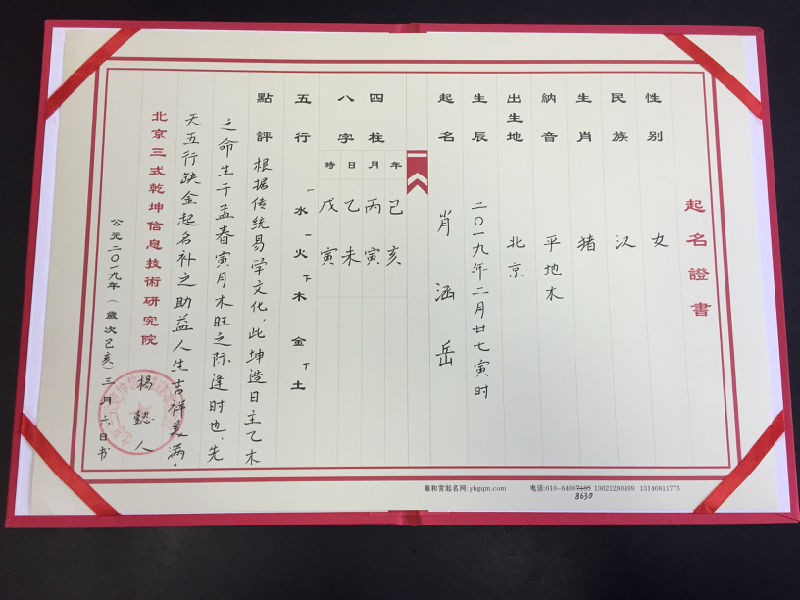 起名證書
性别 女
民族 汉
生肖 猪
納音 平地木
出生地 北京
生辰 二〇一九年二月廿七寅时
起名 肖涵岳
四柱 年 月 日 時
八字 己亥 丙寅 乙未 戊寅
五行 一水一火下木 金下土
點評 根据传统易学文化,此坤造日主乙木
之命生于孟春寅月木旺之际逢时也,先
天五行缺金起名补之助益人生吉祥美满.
北京三式乾坤信息技術研究院 楊懿人
公元二〇一九年(歲次己亥)三月六日书
雍和宫起名网: ykgqm.com
电话:010-6407185 13621280199 13146811775
8630